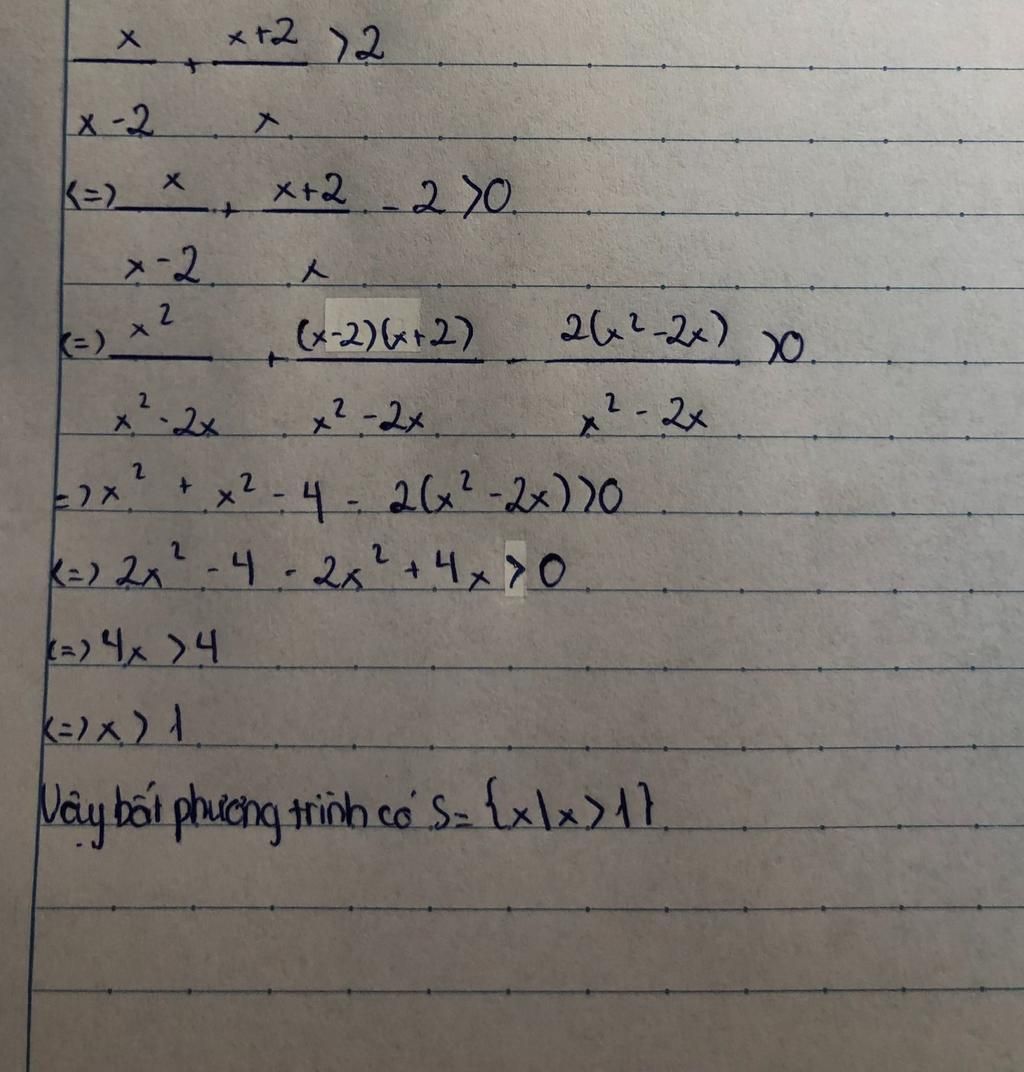 x/(x-2) + (x+2)/x >2
<=> x/(x-2) + (x+2)/x - 2 >0
<=> x²/(x²-2x) + (x-2)(x+2)/(x²-2x) - 2(x²-2x)/(x²-2x) >0
=> x² + x² - 4 - 2(x² -2x) >0
<=> 2x² - 4 - 2x² + 4x > 0
<=> 4x > 4
<=> x > 1
Vậy bất phương trình có S = {x|x>1}